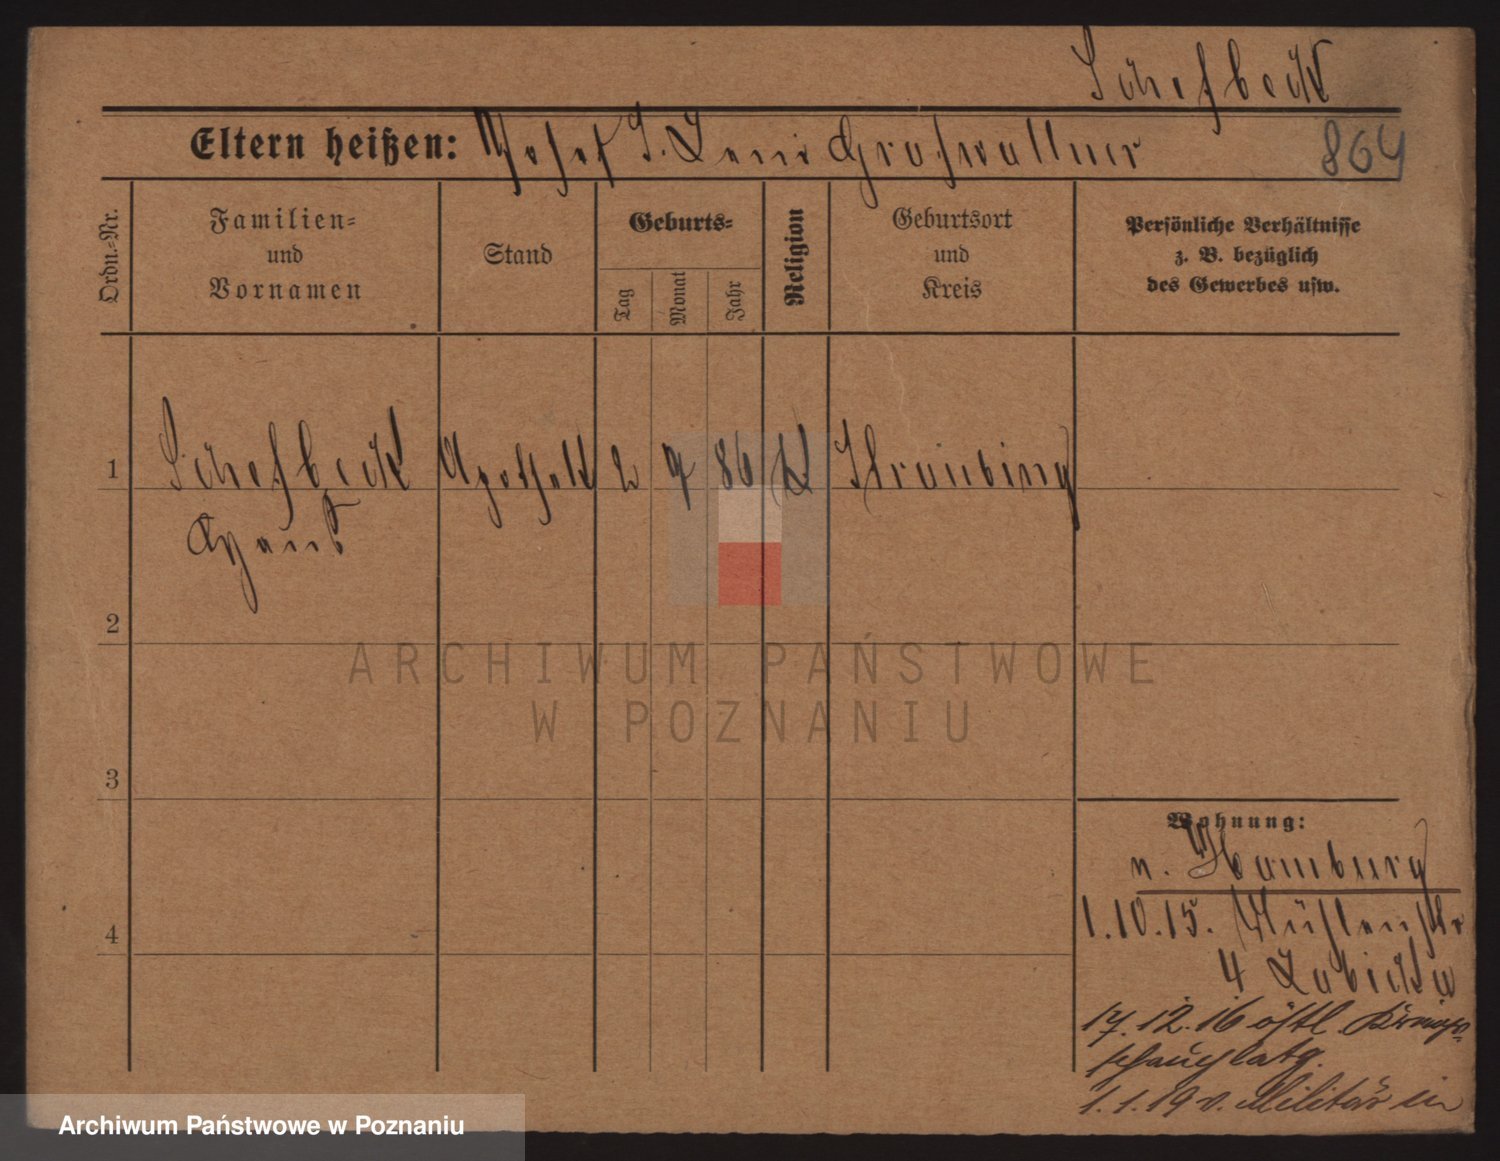 Schefbeck
Eltern heißen: Josef S. Leni Großwallner 864
Ordn.-Nr.
Familien-
und
Vornamen
Stand
Geburts-
Tag
Monat
Jahr
Religion
Geburtsort
und
Kreis
Persönliche Verhältnisse
z. B. bezüglich
des Gewerbes usw.
1 Schefbeck Apothek 2 9 86 K Straubing
Hans
2
3
4
ARCHIWUM PAŃSTWOWE
W POZNANIU
Wohnung:
n. Hamburg
1.10.15. Mühlenstr
4
17.12.16 östl. Kriegs-
schauplatz.
1.1.19 v. Militär in
Archiwum Państwowe w Poznaniu